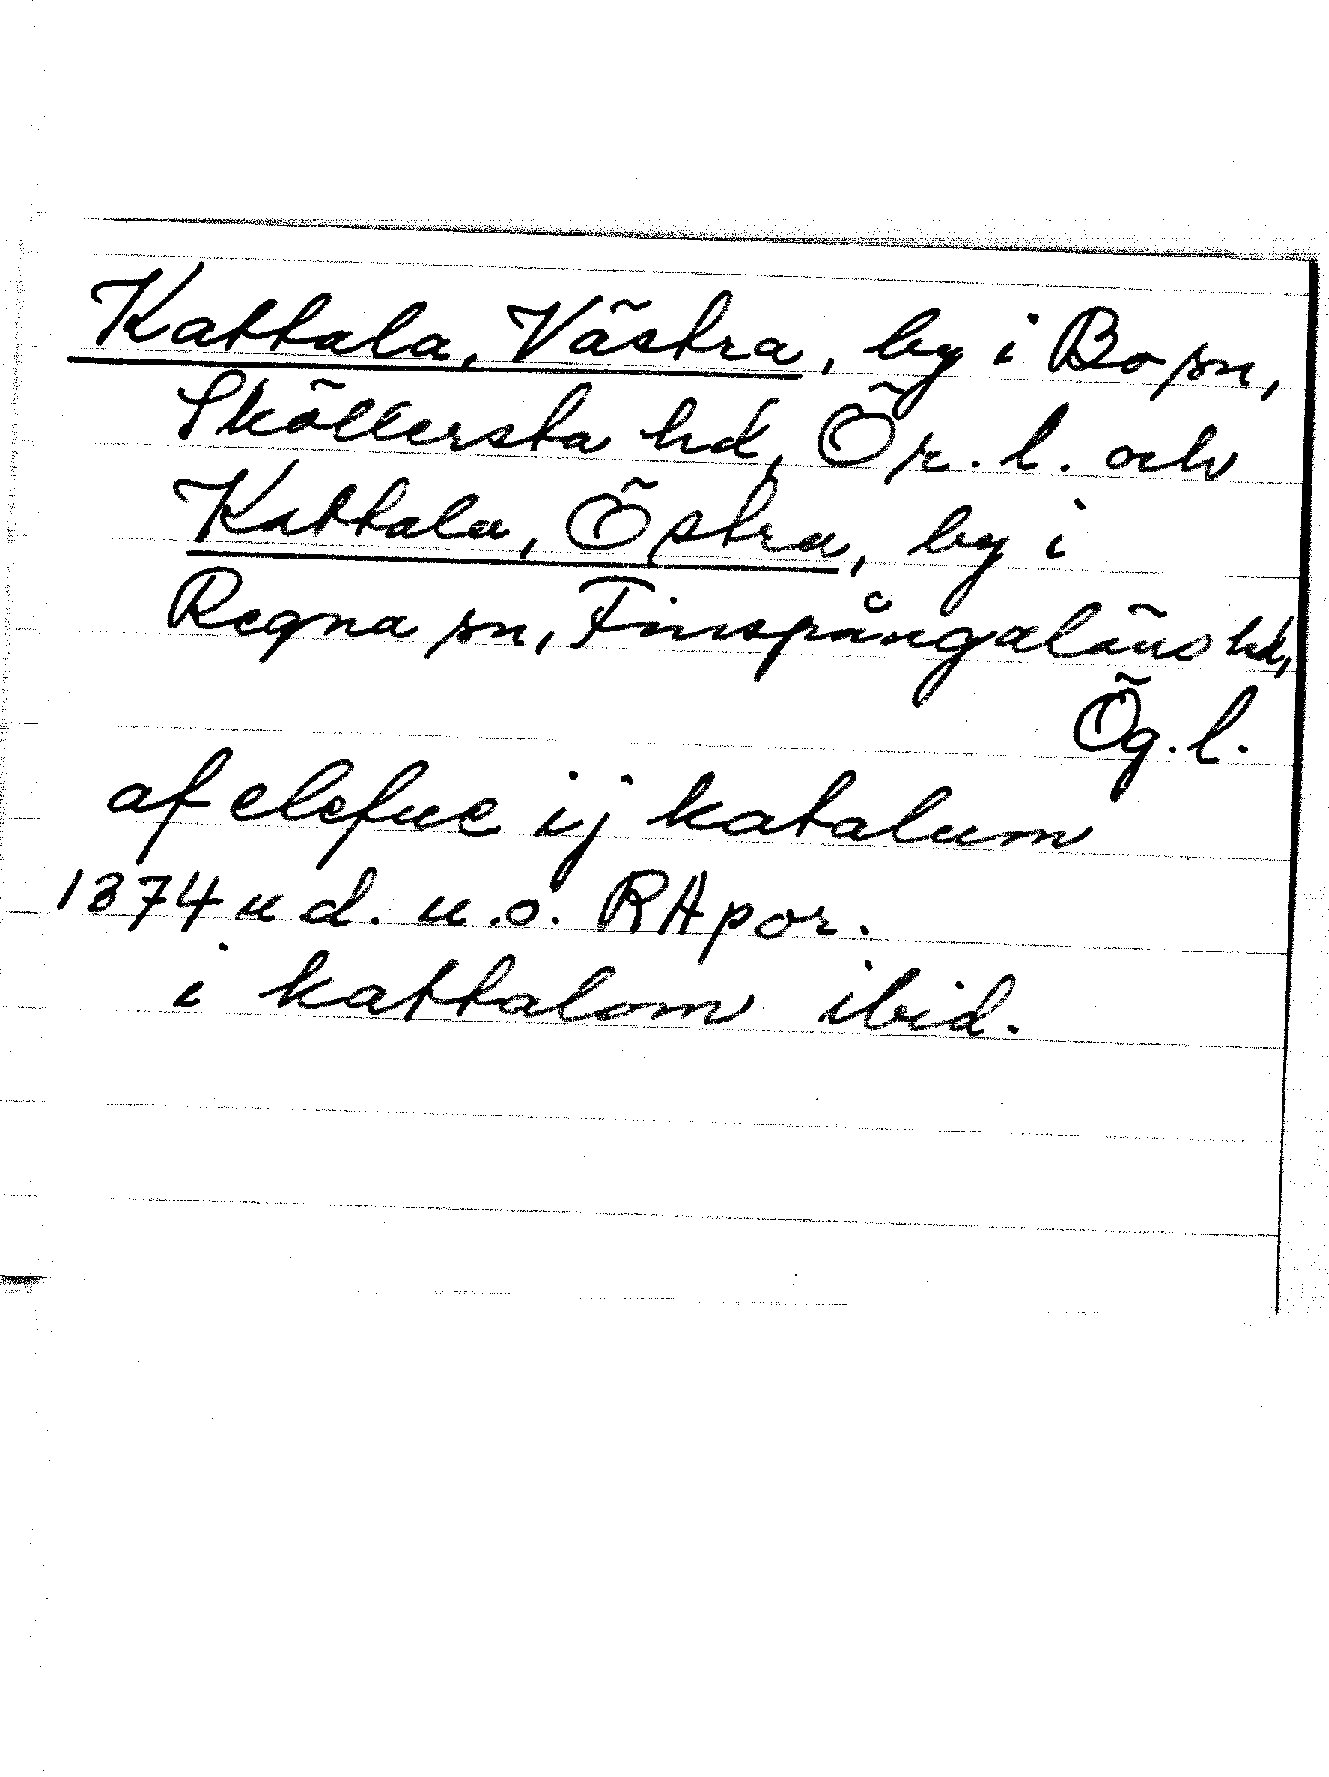 Kattala, Västra, by i Bo sn,
Sköllersta hd, Ör. l. och
Kattala, Östra, by i
Regna sn, Finspångaläns hd,
Ög. l.
af elefue ij katalum
1374 u d. u. o. RApor.
i kattalom ibid.